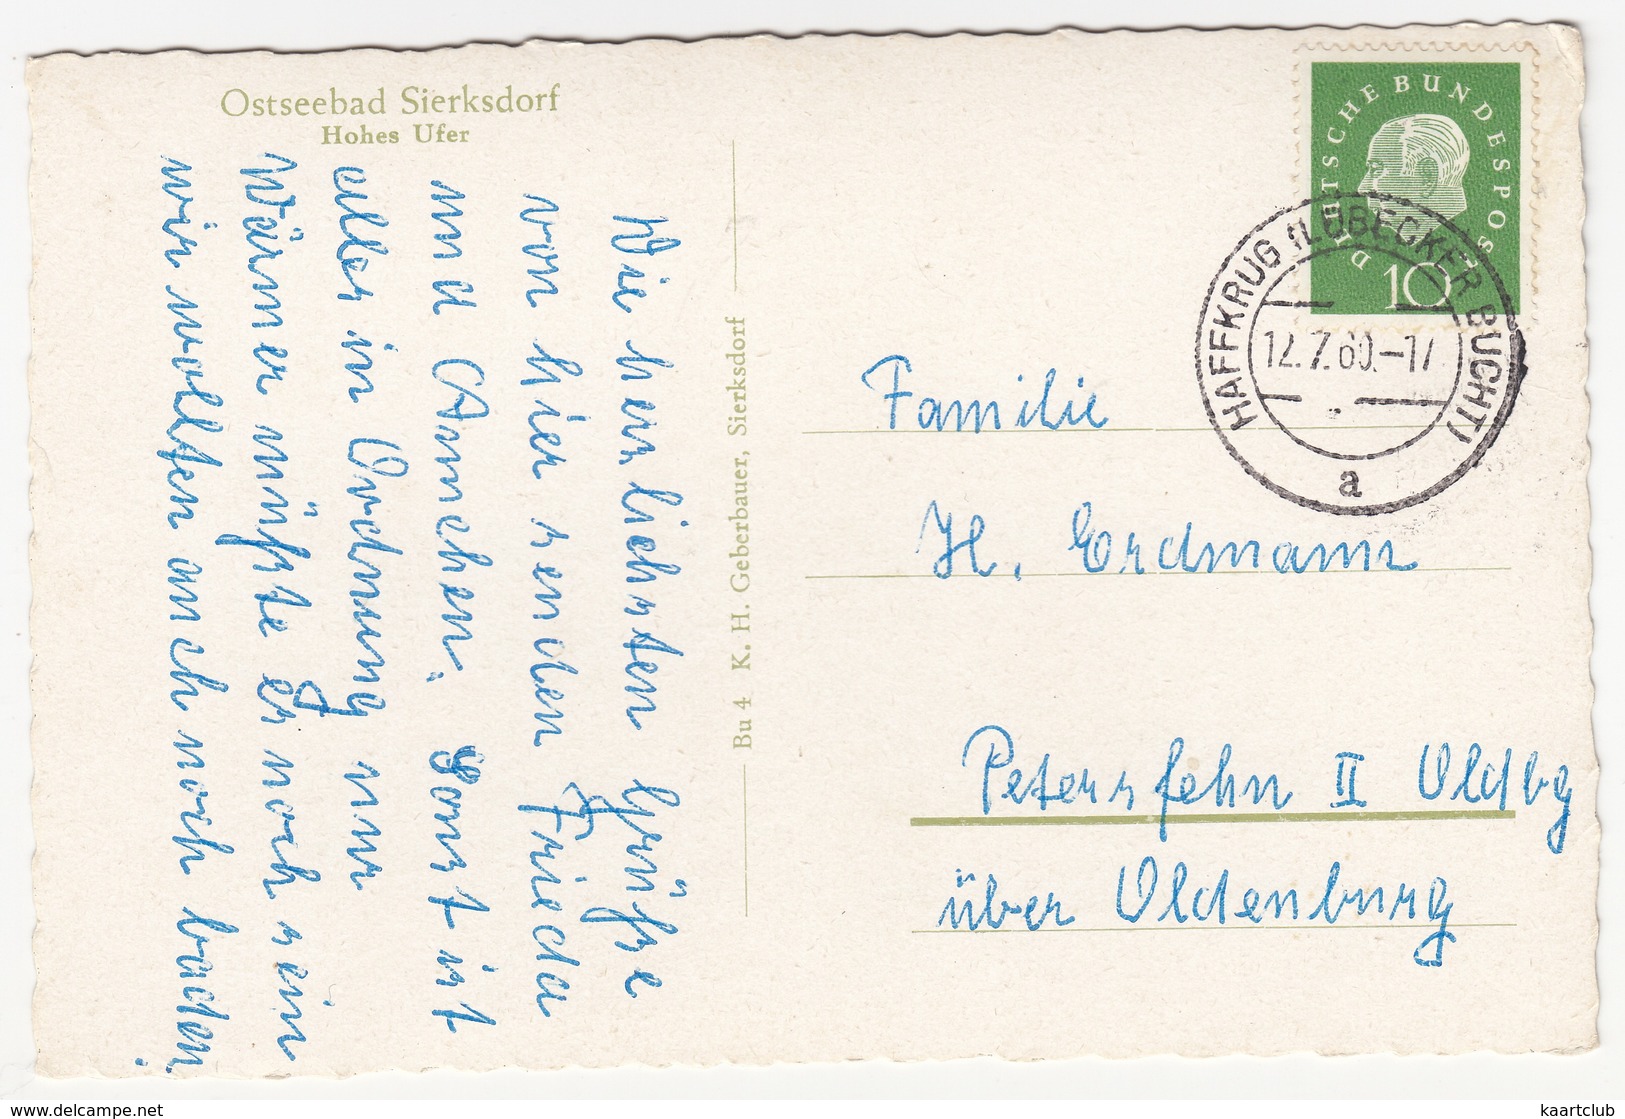 Ostseebad Sierksdorf
Hohes Ufer
Die herzlichsten Grüße
von hier senden Frieda
und Annchen. Sonst ist
alles in Ordnung nur
Wärmer müßte es noch sein
wir wollten auch noch baden.
Bu 4 K. H. Geberbauer, Sierksdorf
DEUTSCHE BUNDESPOST
10
HAFFKRUG (LÜBECKER BUCHT)
12.7.60.-17
a
Familie
H. Erdmann
Petersfehn II Oldbg
über Oldenburg
www.delcampe.net
kaartclub